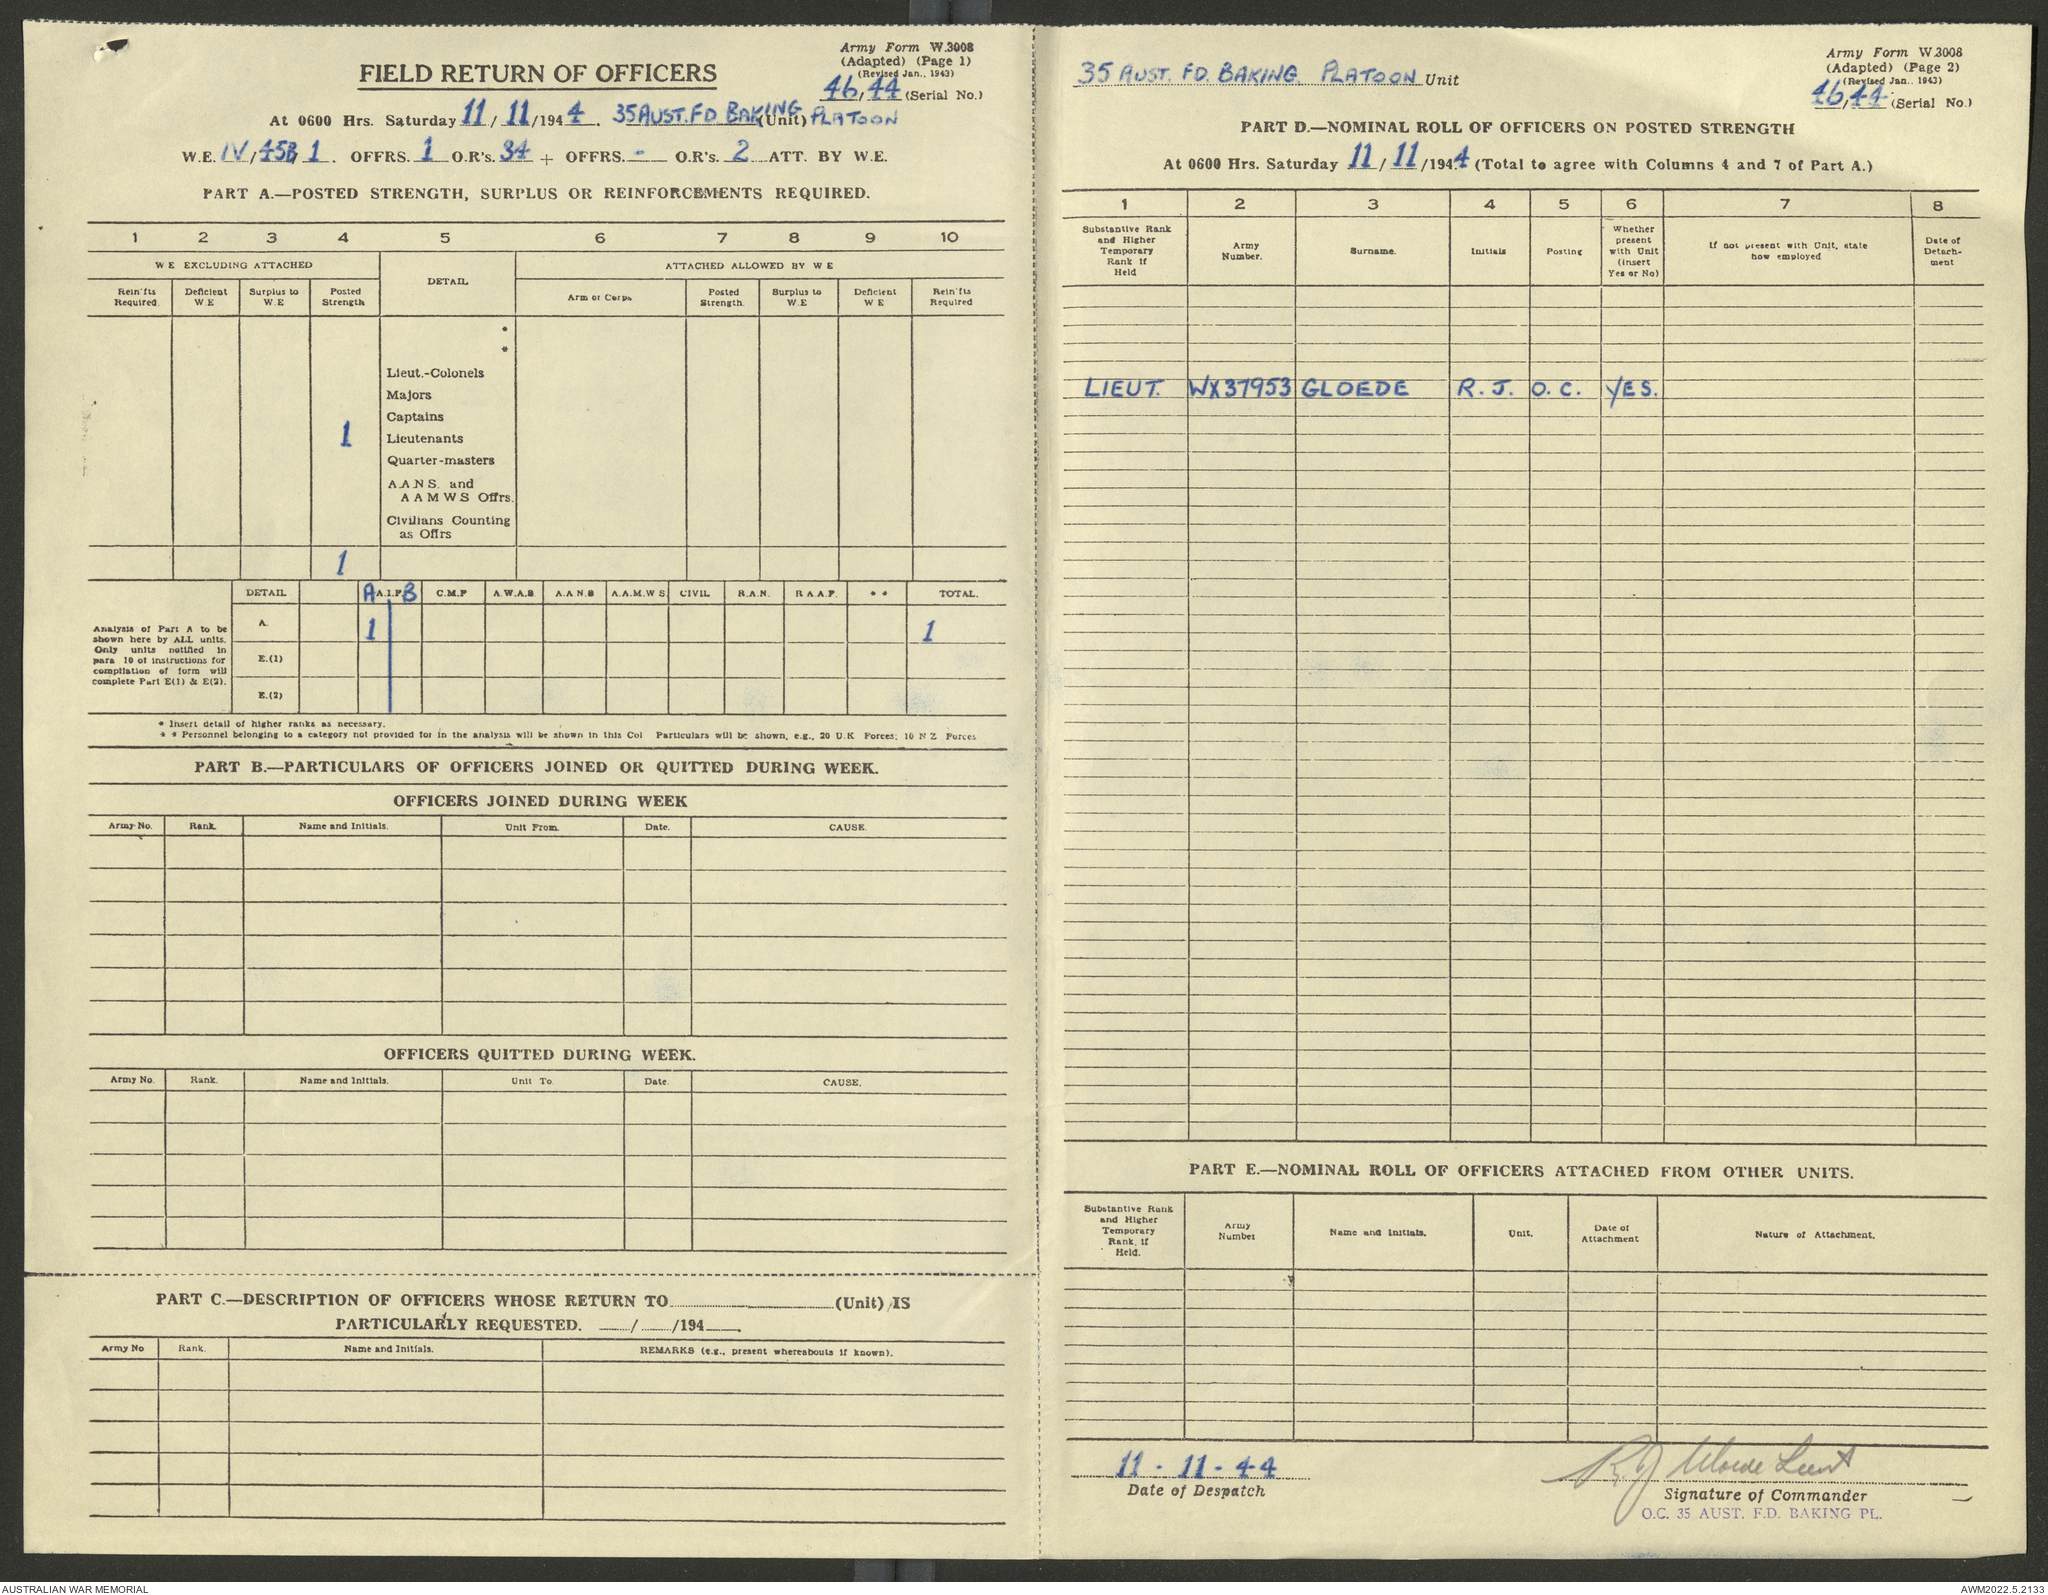 Army Form W.3008
(Adapted) (Page 1)
(Revised Jan., 1943)
FIELD RETURN OF OFFICERS
46/44 (Serial No.)
At 0600 Hrs. Saturday 11/11/1944. 35 AUST. FD BAKING PLATOON (Unit)
W.E. IV/45B/1. OFFRS. 1 O.R's. 34 + OFFRS. - O.R's. 2 ATT. BY W.E.
PART A.—POSTED STRENGTH, SURPLUS OR REINFORCEMENTS REQUIRED.
1 2 3 4 5 6 7 8 9 10
W E EXCLUDING ATTACHED DETAIL ATTACHED ALLOWED BY W E
Rein'fts Required. Deficient W.E Surplus to W.E Posted Strength Arm or Corps Posted Strength. Surplus to W.E Deficient W E Rein'fts Required
*
*
Lieut.-Colonels
Majors
Captains
1 Lieutenants
Quarter-masters
A.A.N.S. and
A A M W S Offrs.
Civilians Counting
as Offrs
1
DETAIL A A.I.F. B C.M.F A.W.A.S A.A.N.S A.A.M.W.S. CIVIL R.A.N. R A.A.F. * * TOTAL.
Analysis of Part A to be
shown here by ALL units.
Only units notified in
para 10 of instructions for
compilation of form will
complete Part E(1) & E(2).
A. 1 1
E.(1)
E.(2)
* Insert detail of higher ranks as necessary.
* * Personnel belonging to a category not provided for in the analysis will be shown in this Col Particulars will be shown, e.g., 20 U.K Forces; 10 N Z Forces
PART B.—PARTICULARS OF OFFICERS JOINED OR QUITTED DURING WEEK.
OFFICERS JOINED DURING WEEK
Army No. Rank. Name and Initials. Unit From. Date. CAUSE.
OFFICERS QUITTED DURING WEEK.
Army No. Rank. Name and Initials. Unit To Date. CAUSE.
PART C.—DESCRIPTION OF OFFICERS WHOSE RETURN TO (Unit) IS
PARTICULARLY REQUESTED. / /194 .
Army No Rank. Name and Initials. REMARKS (e.g., present whereabouts if known).
Army Form W.3008
(Adapted) (Page 2)
(Revised Jan., 1943)
35 AUST. FD. BAKING. PLATOON Unit
46/44 (Serial No.)
PART D.—NOMINAL ROLL OF OFFICERS ON POSTED STRENGTH
At 0600 Hrs. Saturday 11/11/1944 (Total to agree with Columns 4 and 7 of Part A.)
1 2 3 4 5 6 7 8
Substantive Rank and Higher Temporary Rank if Held Army Number. Surname. Initials Posting Whether present with Unit (insert Yes or No) If not present with Unit, state how employed Date of Detach-ment
LIEUT. WX37953 GLOEDE R. J. O. C. YES.
PART E.—NOMINAL ROLL OF OFFICERS ATTACHED FROM OTHER UNITS.
Substantive Rank and Higher Temporary Rank, if Held. Army Number Name and Initials. Unit. Date of Attachment Nature of Attachment.
11 - 11 - 44
Date of Despatch
R J Gloede Lieut
Signature of Commander
O.C. 35 AUST. F.D. BAKING PL.
AUSTRALIAN WAR MEMORIAL
AWM2022.5.2133